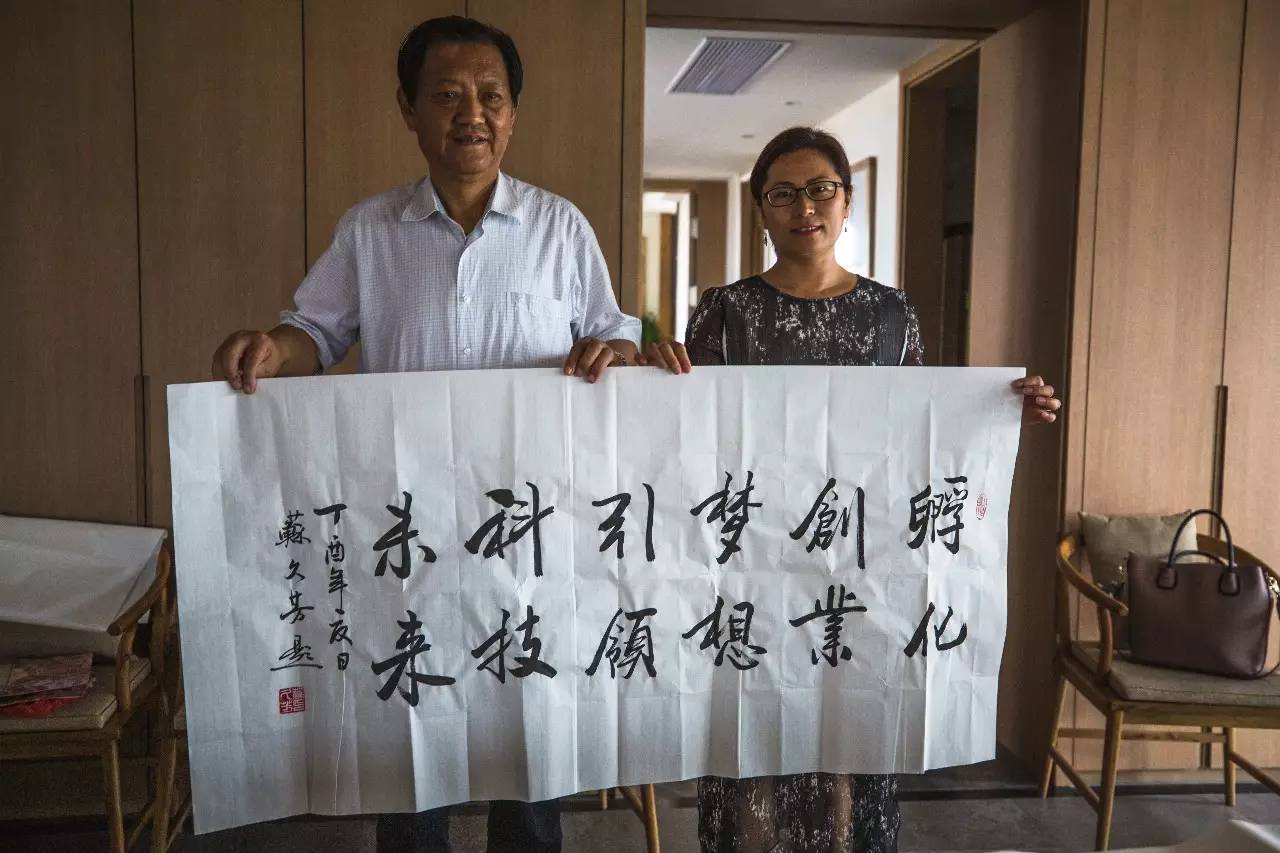 孵化
創業
夢想
引領
科技
未来
丁酉年夏日
蘇久芳題